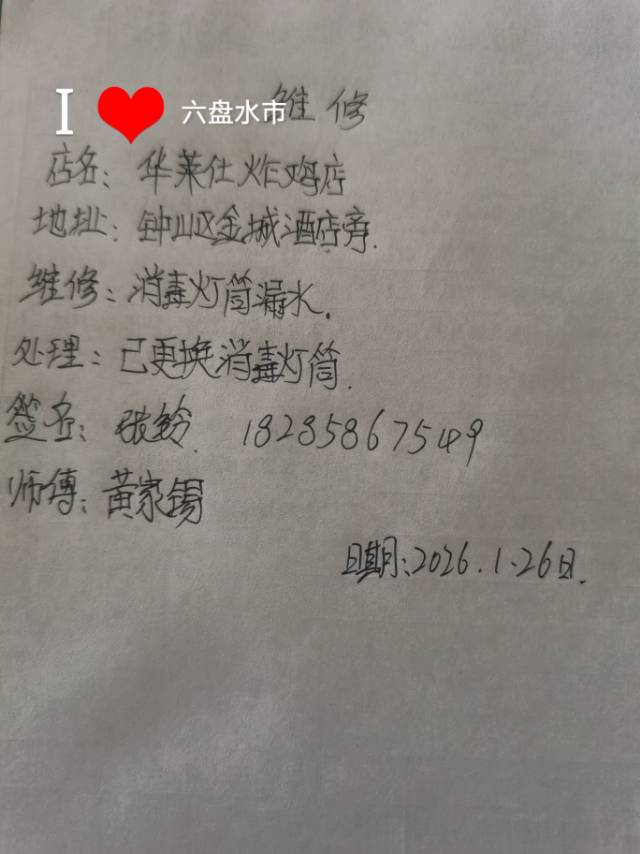 I ❤ 六盘水市
维修
店名：华莱仕炸鸡店
地址：钟山区金城酒店旁.
维修：消毒灯筒漏水.
处理：已更换消毒灯筒.
签名：张铃. 18285867549
师傅：黄家锡
日期：2026.1.26日.